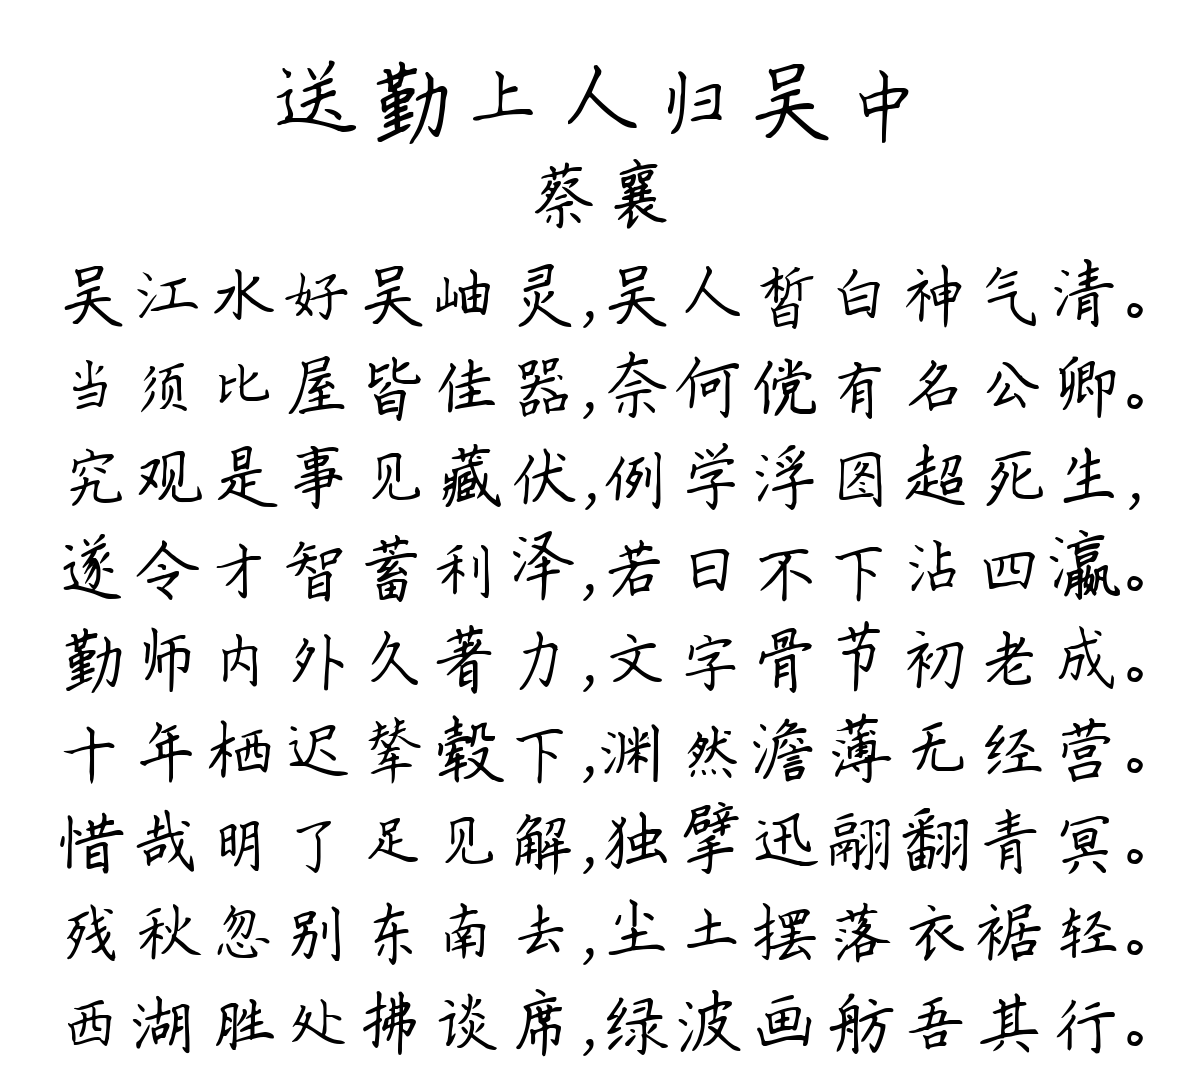 送勤上人归吴中
蔡襄
吴江水好吴岫灵,吴人皙白神气清。
当须比屋皆佳器,奈何傥有名公卿。
究观是事见藏伏,例学浮图超死生,
遂令才智蓄利泽,若曰不下沾四瀛。
勤师内外久著力,文字骨节初老成。
十年栖迟辇毂下,渊然澹薄无经营。
惜哉明了足见解,独擘迅翮翻青冥。
残秋忽别东南去,尘土摆落衣裾轻。
西湖胜处拂谈席,绿波画舫吾其行。